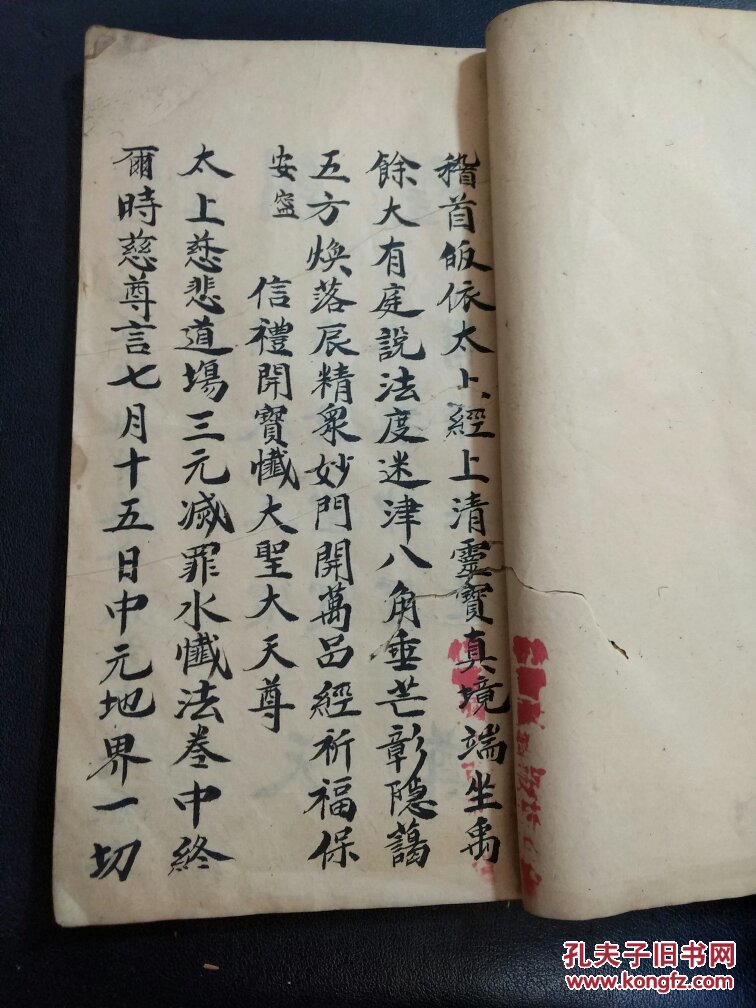 稽首皈依太上經上清靈寶真境端坐禹
餘大有庭說法度迷津八角垂芒彰隱藹
五方煥落辰精衆妙門開萬品經祈福保
安寍
信禮開寶懺大聖大天尊
太上慈悲道場三元滅罪水懺法卷中終
爾時慈尊言七月十五日中元地界一切
孔夫子旧书网
www.kongfz.com